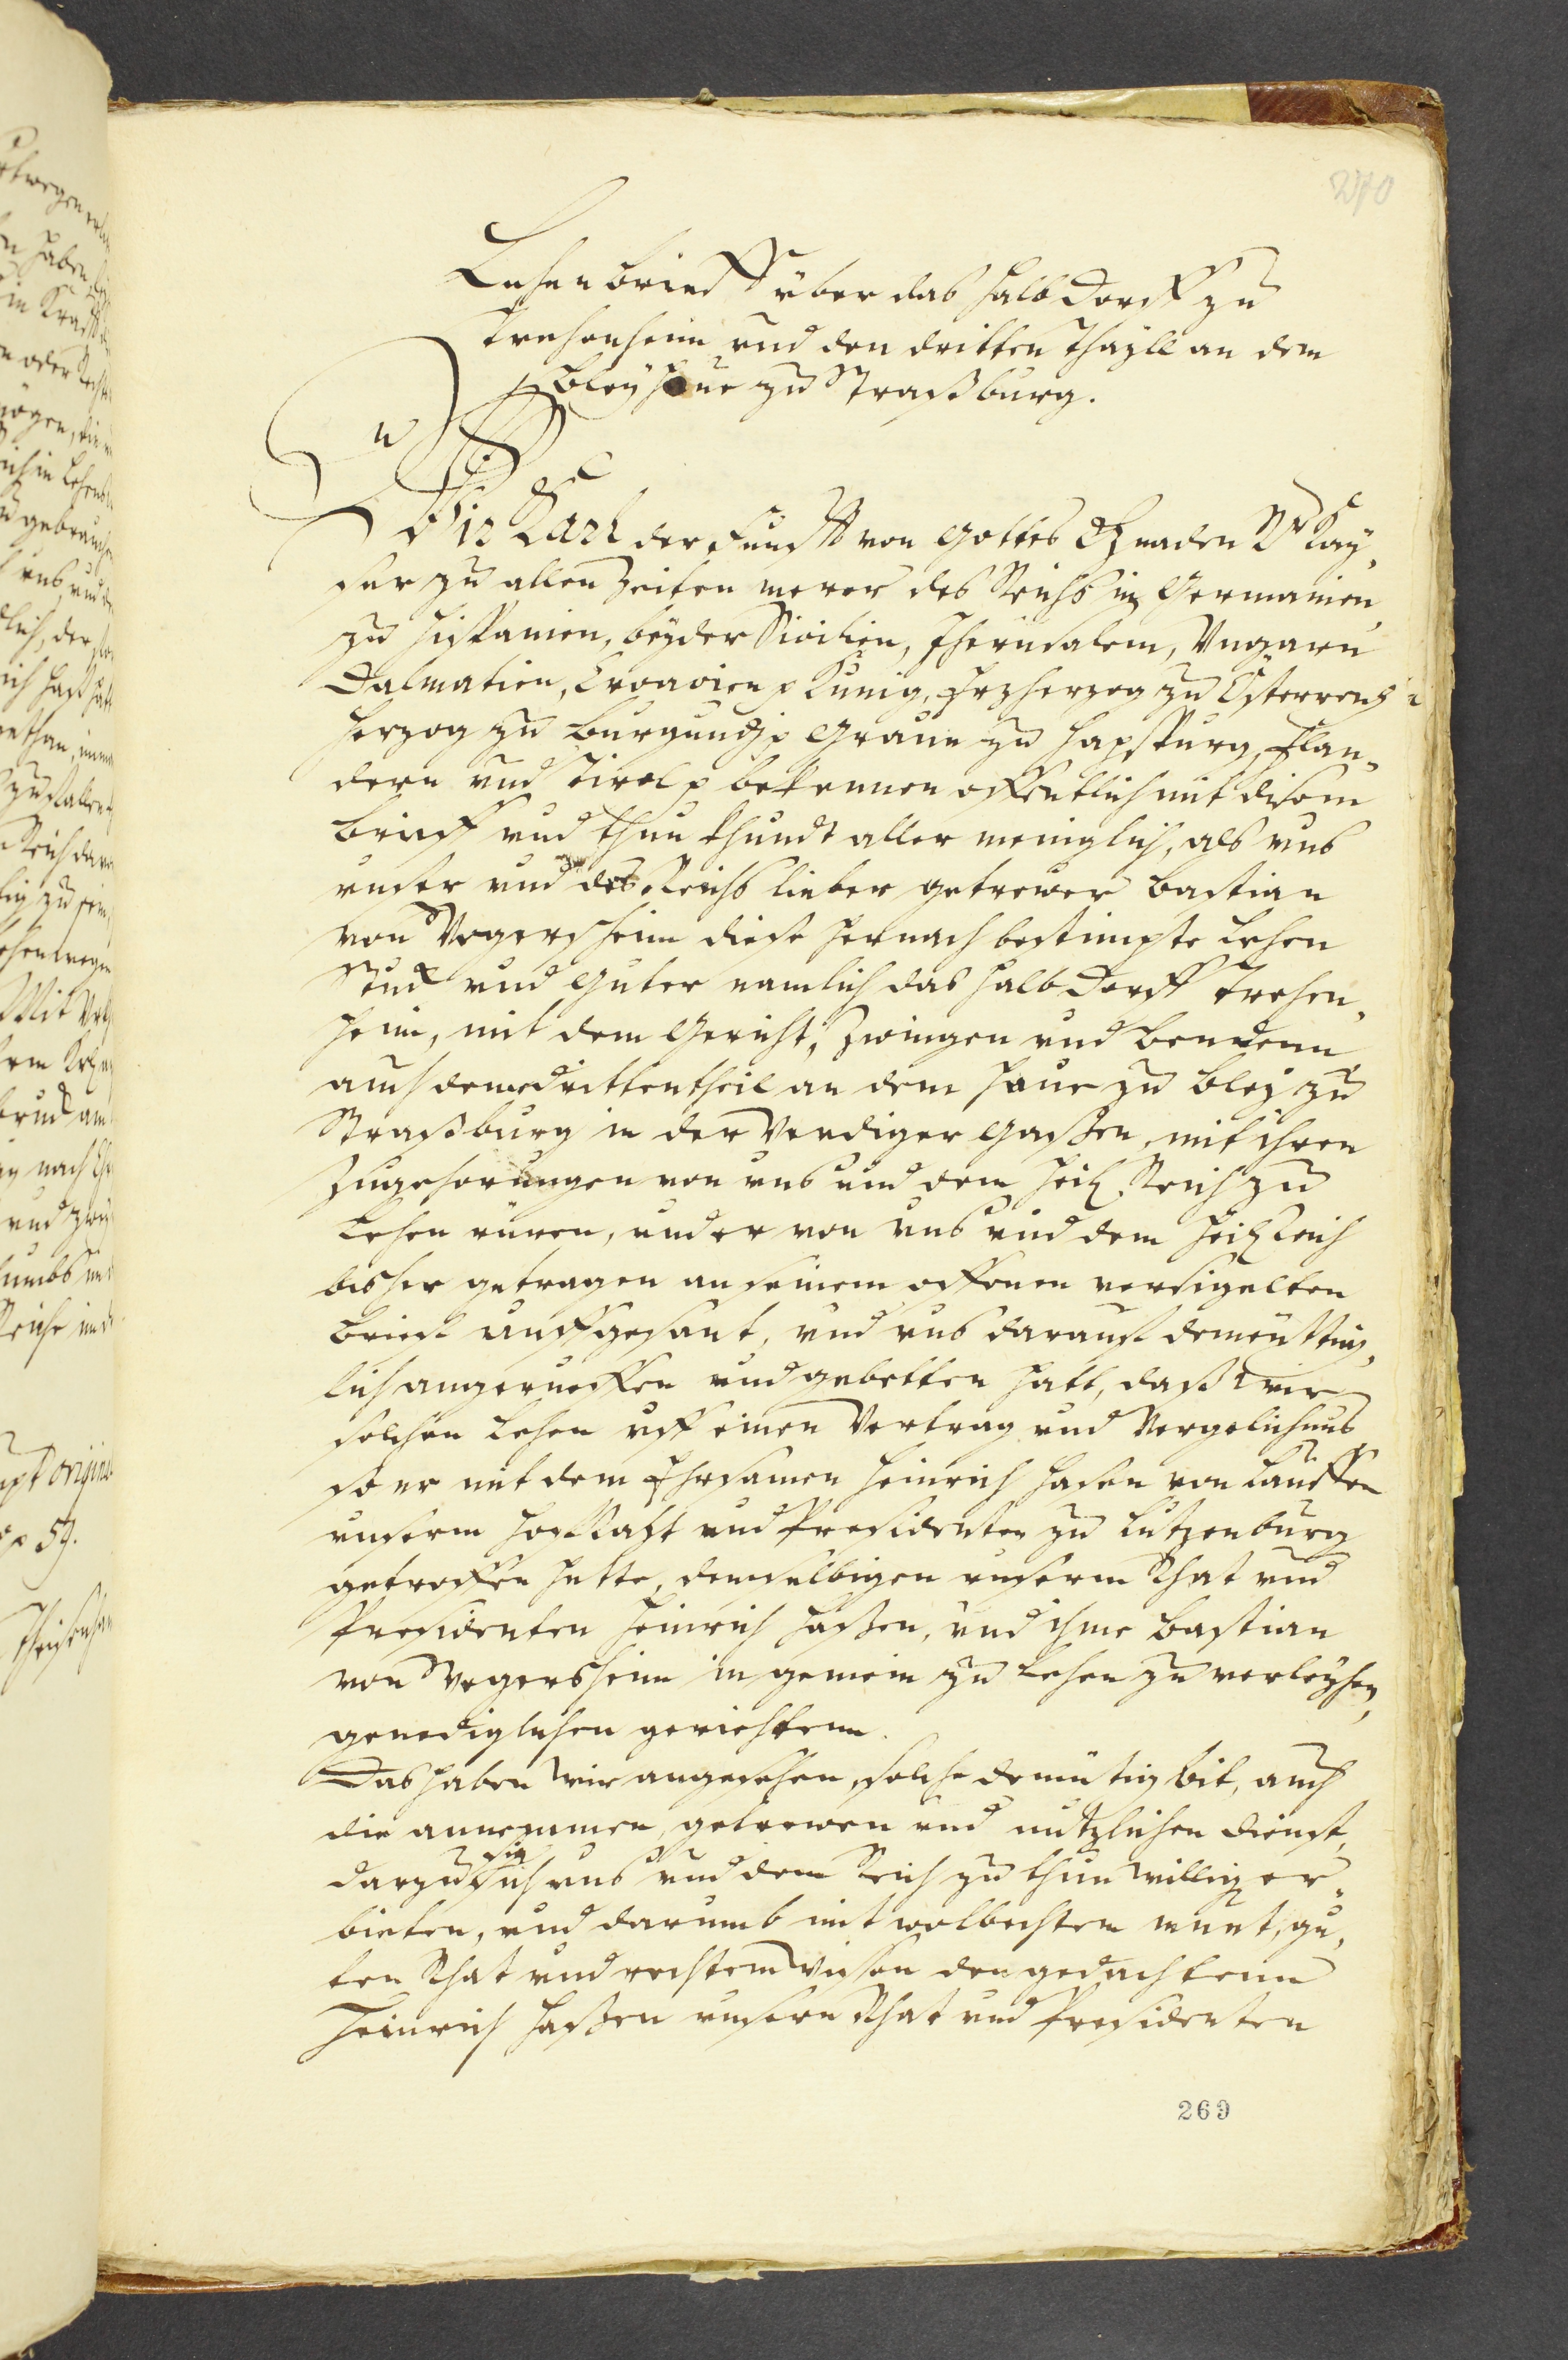 270
Lehenbrieff über das halb Dorff zu
Trehenheim und den dritten thayll an dem
Bley haue zu Straßburg.
Wir Karl der Funfft von Gottes Gnaden Rö: Kay,
ser zu allen Zeiten merer des Reichs in Germanien,
zu Hispanien, beyder Sicilien, Jherusalem, Vngarn
Dalmatien, Croacien p Kunig, Erzherzog zu Österreich
Herzog zu Burgundj p Graue zu Hapspurg, Flan„
dern und Tirol p bekennen offentlich mit disem
Brieff und thun khundt aller meniglich, als uns
unser und des Reichs lieber getrewer Bastian
von Vegersheim diese hernach bestimpte Lehen
Stuck und Guter namlich das halb Dorff Trehen„
heim, mit dem Gericht, Zwingen und Bendenn
auch dem dritten theil an dem haue zu Bley zu
Straßburg in der Prediger Gassen, mit ihren
Zugehorungen von uns und dem Heil. Reich zu
Lehen ruren, und er von uns und dem Heil Reich
bisher getragen an seinem offenen versigelten
Brieff auffgesant, und uns darauff demütig,
lich angerueffen und gebetten hatt, daß wir
solchen Lehen uff einen Vertrag und Vergelichnus
so er mit dem Ehrsamen Heinrich Hasen von Lauffen
unserm Hof Raht und Presidenten zu Lutzenburg
getroffen hette, demselbigen unserm Rhat und
Presidenten Heinrich Hassen, und ihme Bastian
von Vegersheim in gemein zu Lehen zu verleyhen,
genediglichen gerichtenn.
Das haben wir angesehen, solche demütig bit, auch
die annemmen, getrewen und nützlichen dienst,
darzu sie sich uns und dem Reich zu thun willig er„
bieten, und darumb mit wolbechtem muet, gu,
ten Rhat und rechtem wissen den gedachtenn
Heinrich Hassen unsern Rhat und Presidenten
269